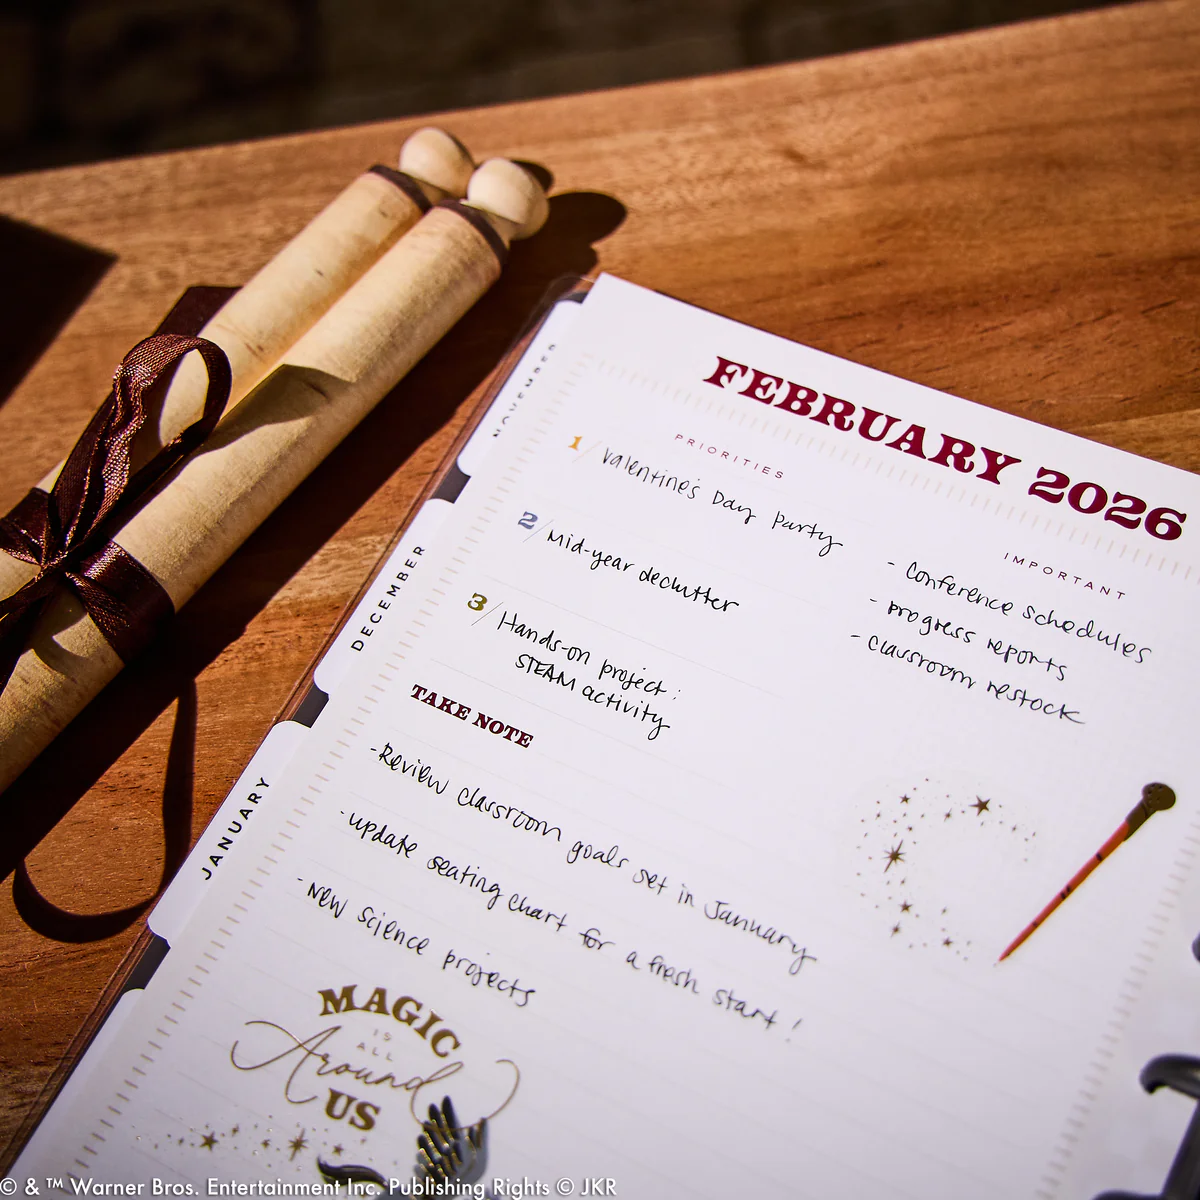 FEBRUARY 2026
PRIORITIES
1/ Valentine's Day Party
2/ Mid-year declutter
3/ Hands-on project:
STEAM activity
IMPORTANT
- Conference schedules
- progress reports
- classroom restock
TAKE NOTE
- Review classroom goals set in January
- update seating chart for a fresh start!
- new science projects
MAGIC
IS
ALL
Around
US
NOVEMBER
DECEMBER
JANUARY
© & ™ Warner Bros. Entertainment Inc. Publishing Rights © JKR